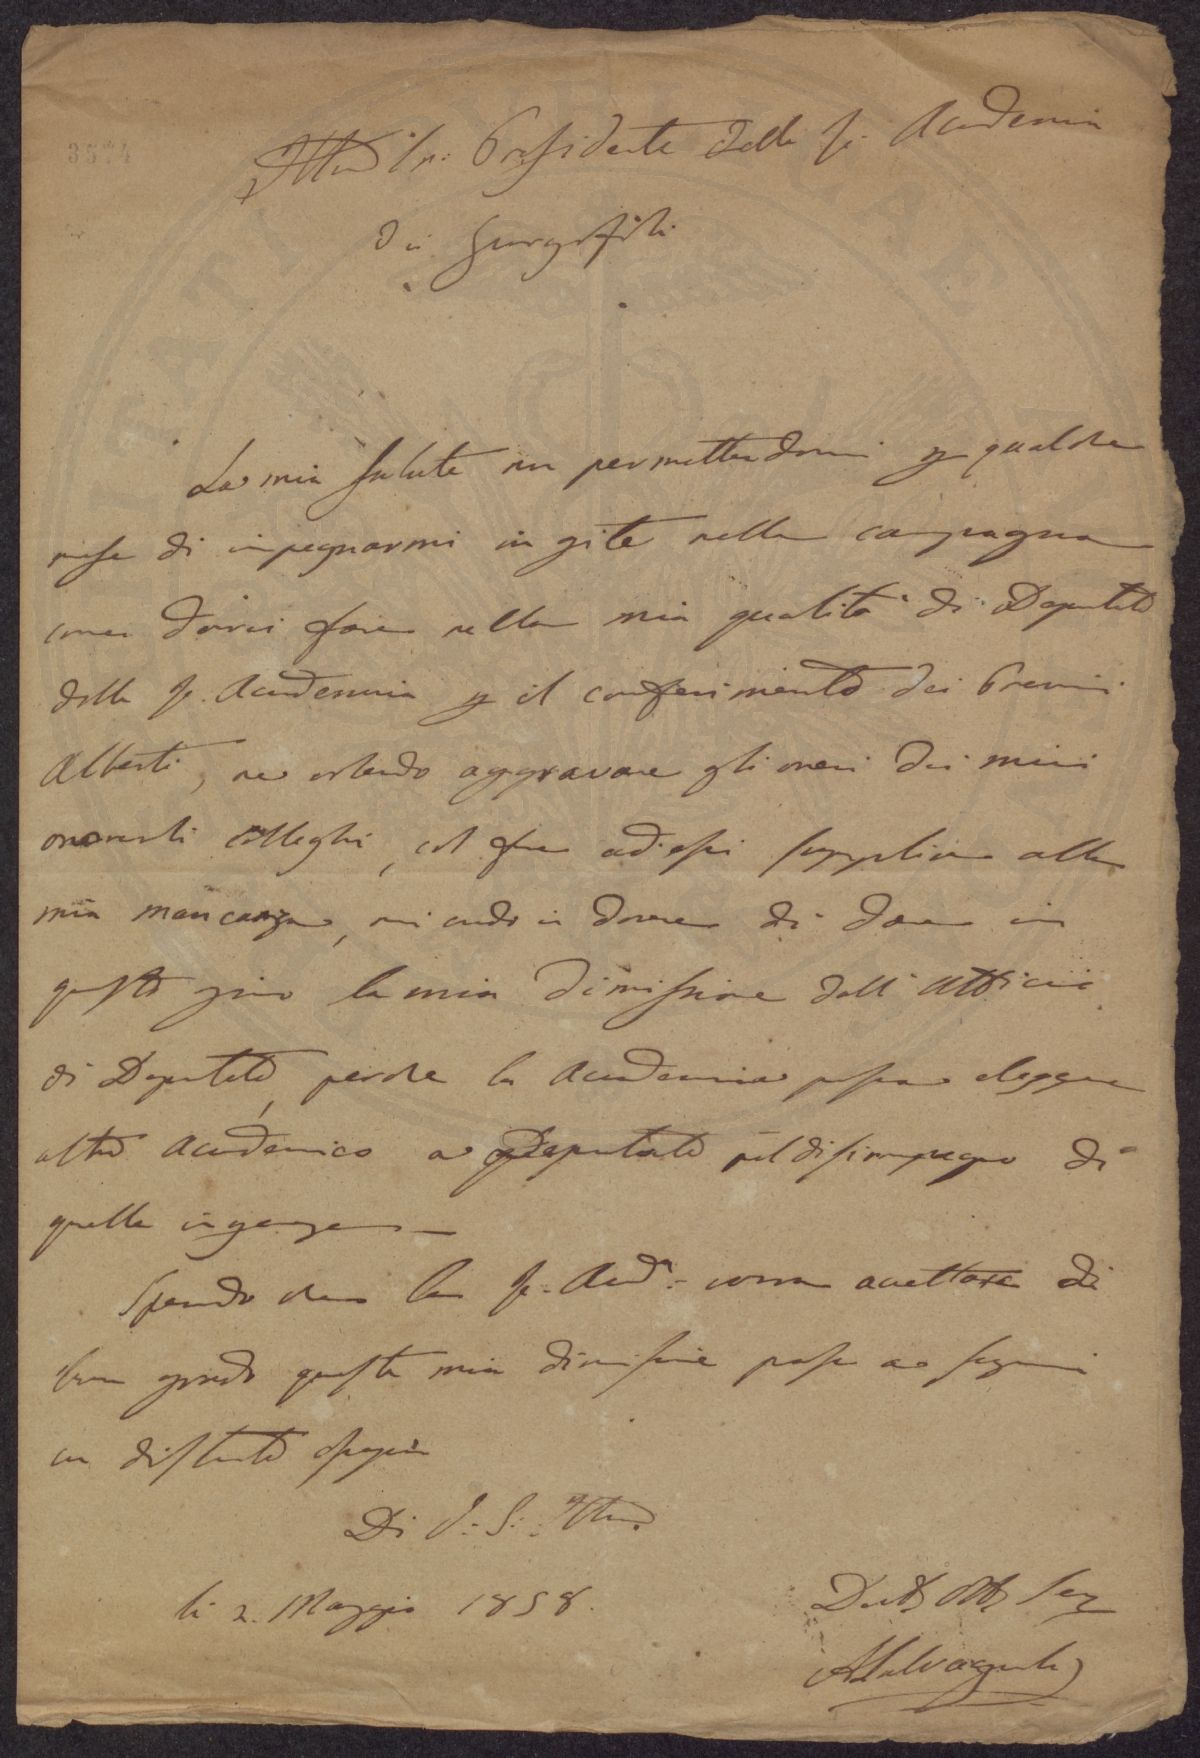 3574
Illmo Sr. Presidente della R. Accademia
dei Georgofili
La mia salute non permettendomi p qualche
mese di impegnarmi in gite nella campagna
come dovrei fare nella mia qualità di Deputato
della R. Accademia p il conferimento dei Premi
Alberti, ne volendo aggravare gli oneri dei miei
onorevoli colleghi, col fare ad essi supplire alla
mia mancanza, mi credo in dovere di dare in
questo giorno la mia dimissione dall'
di Deputato, perche la Accademia possa eleggere
altro Accademico a Deputato nel disimpegno di
quella ingerenza —
Sperando che la R. Acca. vorrà accettare di
buon grado questa mia dimissione passo a segnarmi
con distinto ossequio
Di V. S. Illma.
li 2. Maggio 1858.
Devot Obb Ser
ASalvagnoli